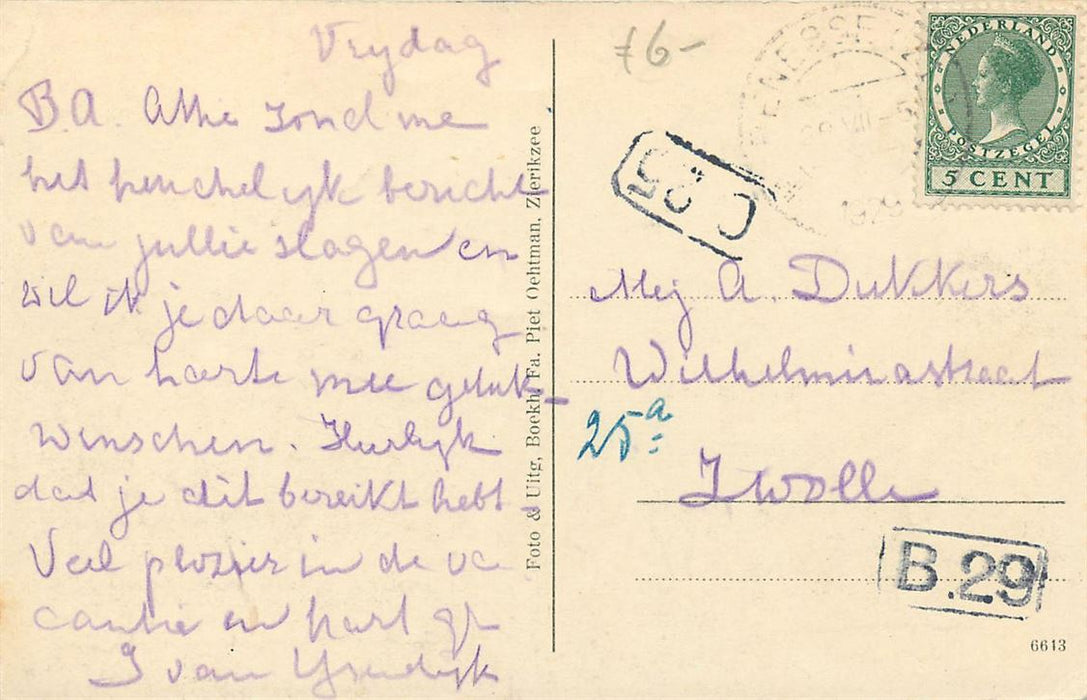 Vrydag
B.A. Athe zond me
het heuchelijk bericht
van jullie slagen en
wil ik je daar graag
van harte mee geluk-
wenschen. Heerlijk
dat je dit bereikt hebt.
Veel plezier in de va
cantie en hart gr
J van IJsendijk
Foto & Uitg, Boekh. Fa. Piet Oehtman, Zierikzee
f6-
NEDERLAND
POSTZEGEL
5 CENT
1929
C 25
Mej A. Dukkers
Wilhelminastraat
25a
Zwolle
B.29
6613